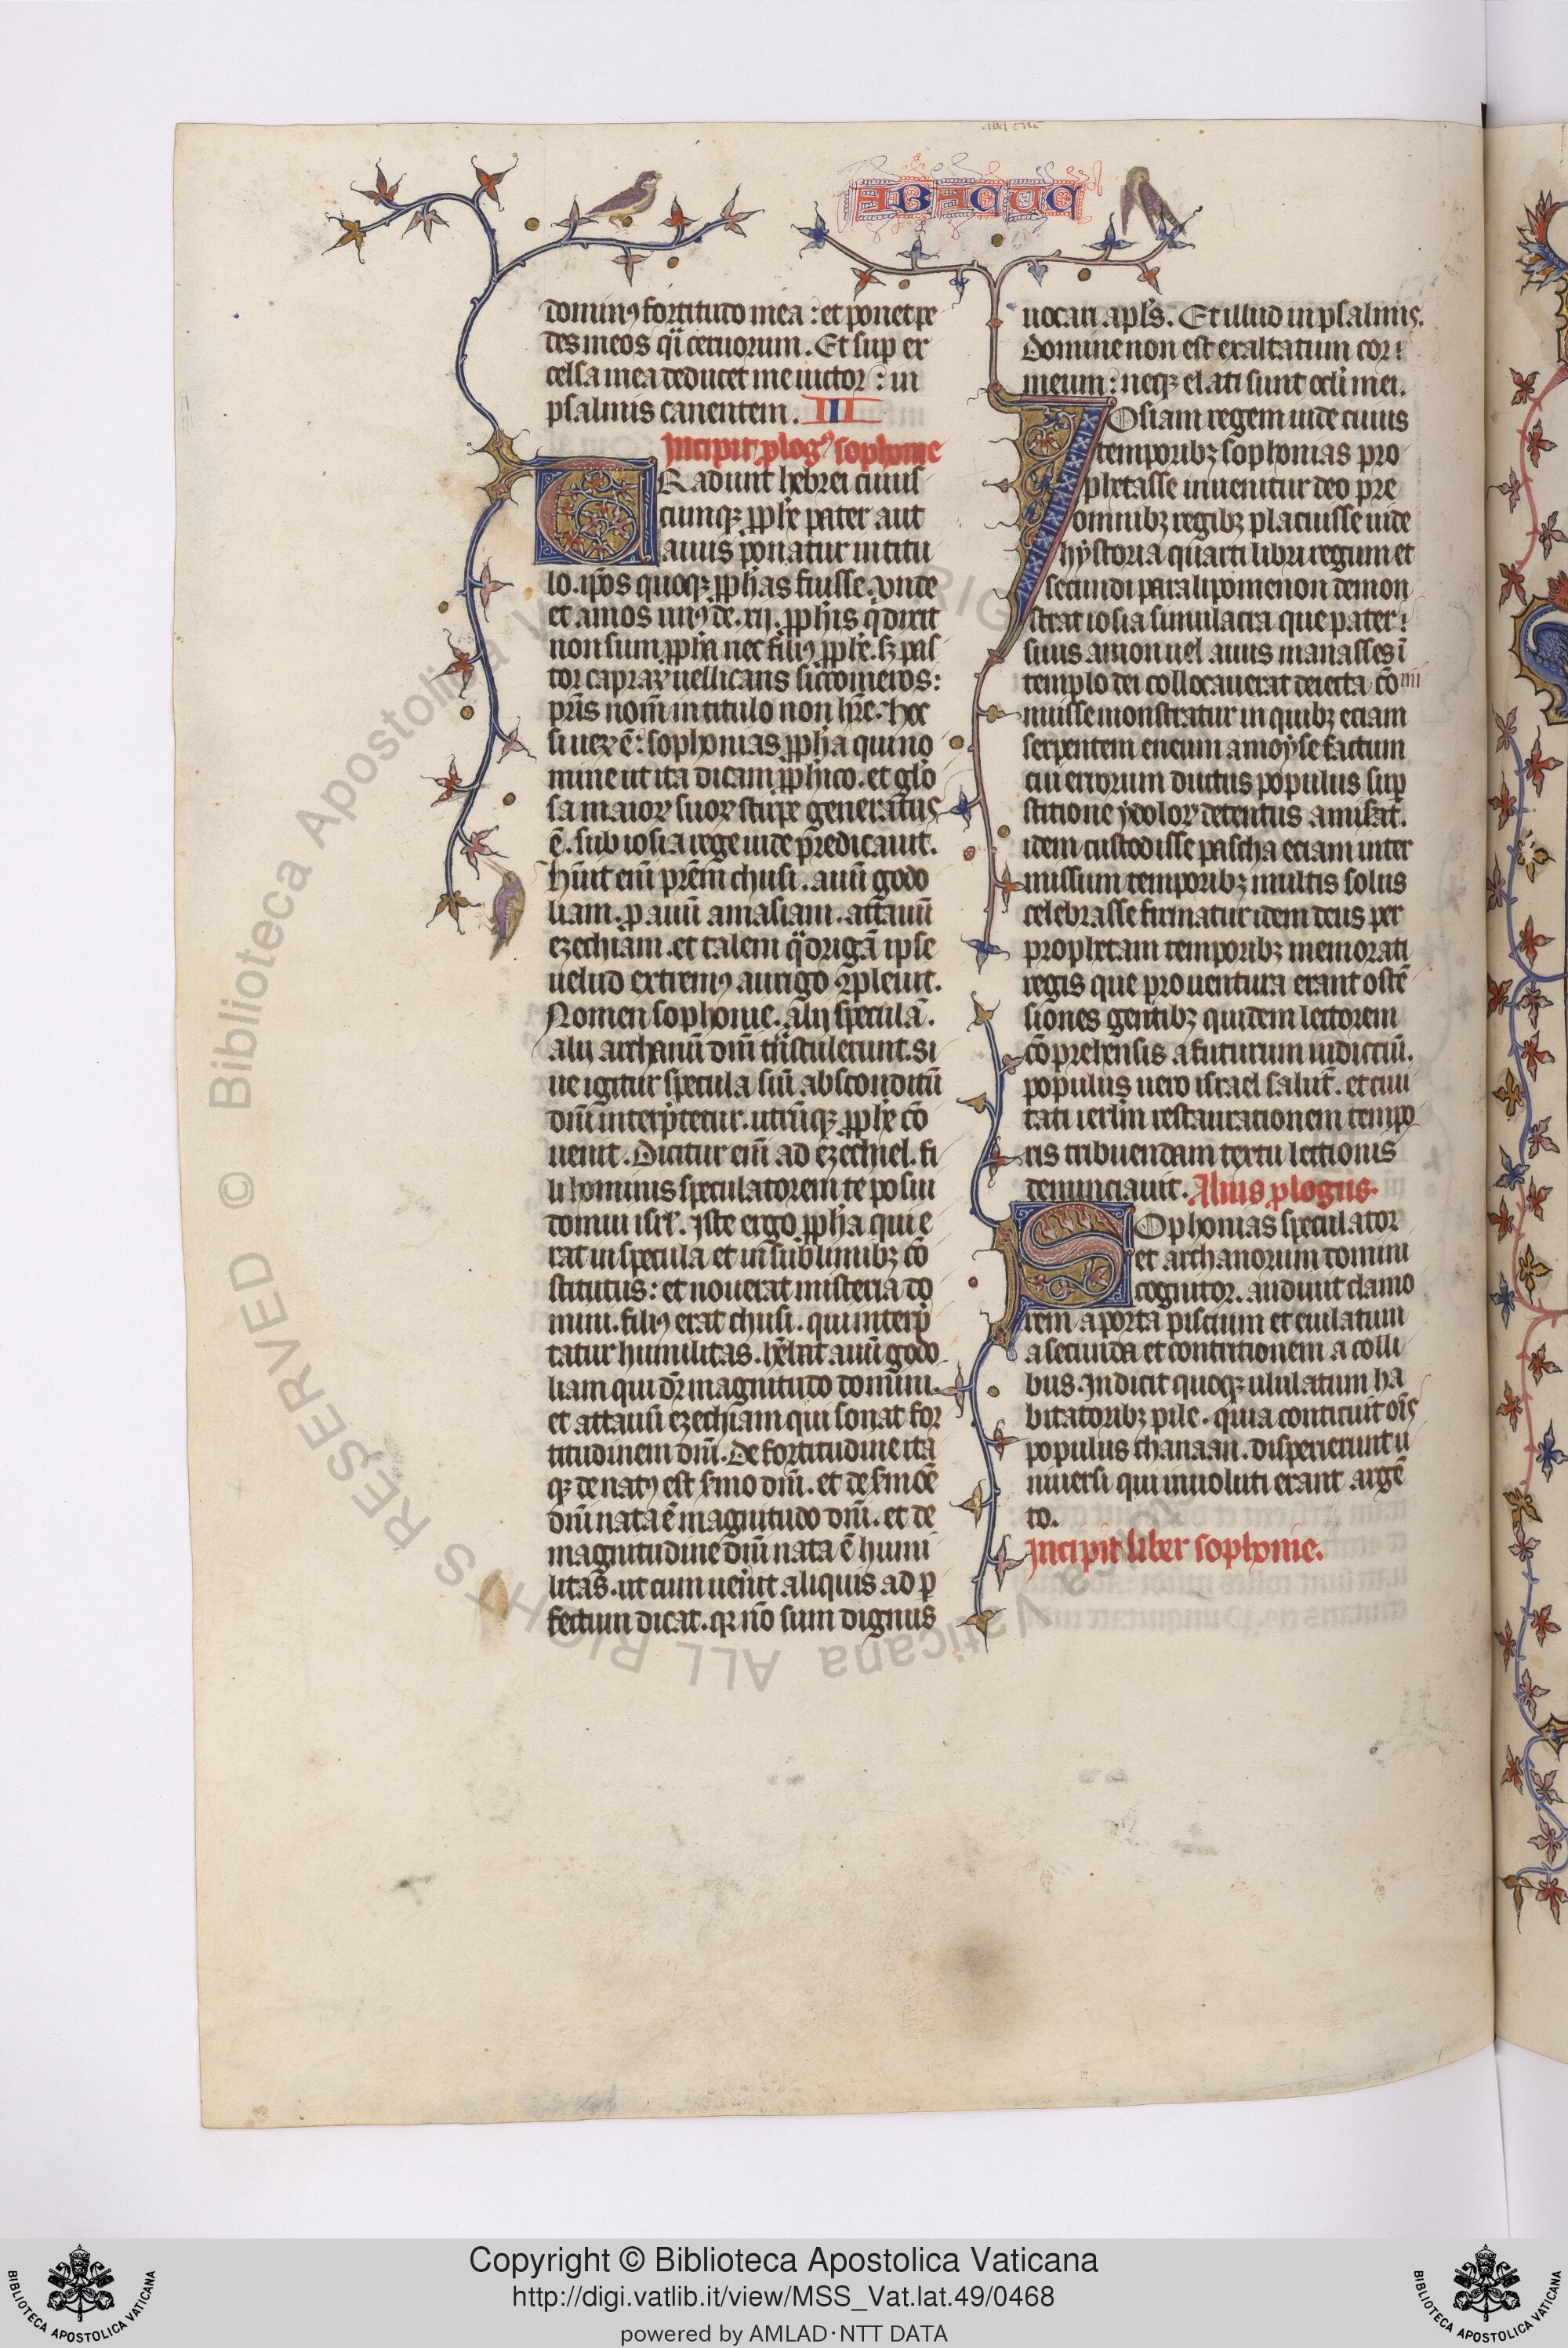 ABACUC
dominꝰ fortitudo mea : et ponet pe
des meos qͣi cervorum . Et suꝑ ex
celsa mea deducet me victor : in
psalmis canentem . III
Incipit ꝓlogꝰ sophonie
TRadunt hebrei cuius
cumqꝫ ꝓphe pater aut
auus ponatur in titu
lo . ip̄os quoqꝫ ꝓphas fuisse . vnde
et amos unꝰ de . xij . ꝓphis q̇ dixit
non sum ꝓpha nec filiꝰ ꝓphe . sꝫ pas
tor capraꝝ uellicans siccomeros :
pr̄is nom̄ in titulo non hr̄e . hoc
si ueꝝ ē : sophonias ꝓpha qui no
mine ut ita dicam ꝓphico . et glo
sa maioꝝ suoꝝ stirpe generatus
ē . sub iosia rege iude predicauit .
hn̄t eni͂ prēm chusi . auū godo
liam . ꝓauū amasiam . attauū
ezechiam . et talem qͣdrigā ipse
uelud extremꝰ aurigo ꝯpleuit .
Nomen sophonie . alij speculā .
alij archanū dn̄i trͣnstulerunt . si
ue igitur specula siū absconditū
dn̄i interp̄tetur . utrūqꝫ ꝓphe cō
uenit . Dicitur eni͂ ad ezechiel . fi
li hominis speculatorem te posui
domui isrl̄ . Iste ergo ꝓpha qui e
rat in specula et in sublimibꝫ cō
stitutus : et nouerat misteria do
mini . filiꝰ erat chusi . qui interp̄
tatur humilitas . hēbat auū godo
liam qui dr̄ magnitudo domini .
et attauū ezechiam qui sonat for
titudinem dn̄i . De fortitudine ita
qꝫ de natꝰ est s̄mo dn̄i . et de s̄mōe
dn̄i nata ē magnitudo dn̄i . et de
magnitudine dn̄i nata ē humi
litas . ut cum uen̄it aliquis ad ꝑ
fectum dicat . qꝛ nō sum dignus
uocari apl̄s . Et illud in psalmis .
Domine non est exaltatum cor :
meum : neqꝫ elati sunt ocl̄i mei .
IOsiam regem iude cuius
temporibꝫ sophonias pro
phetasse inuenitur deo pre
omnibꝫ regibꝫ placuisse iude
hystoria quarti libri regum et
secundi paralipomenon demon
strat iosia simulacra que pater :
suus amon uel auus manasses ī
templo dei collocauerat deiecta cōmi
nuisse monstratur in quibꝫ etiam
serpentem eneum a moyse factum
cui errorum ductus populus suꝑ
stitione ydoloꝝ detentus amisat .
idem custodisse pascha etiam inter
missum temporibꝫ multis solus
celebrasse firmatur idem deus per
prophetam temporibꝫ memorati
regis que prouentura erant ostē
siones gentibꝫ quidem lectorem
cōprehensis a futurum iudiciū .
populus uero israel salut̄ . et ciui
tati ierl̄m restaurationem tempo
ris tribuendam tertii lectionis
denunciauit . Alius ꝓlogus .
SOphonias speculator
et archanorum domini
cognitor . audiuit clamo
rem a porta piscium et eiulatum
a secunda et contritionem a colli
bus . Indicit quoqꝫ ululatum ha
bitatoribꝫ pile . quia conticuit oīs
populus chanaan . disperierunt u
niuersi qui inuoluti erant argē
to .
Incipit liber sophonie .
© Biblioteca Apostolica Vaticana ALL RIGHTS RESERVED
Copyright © Biblioteca Apostolica Vaticana
http://digi.vatlib.it/view/MSS_Vat.lat.49/0468
powered by AMLAD·NTT DATA
BIBLIOTECA APOSTOLICA VATICANA
BIBLIOTECA APOSTOLICA VATICANA